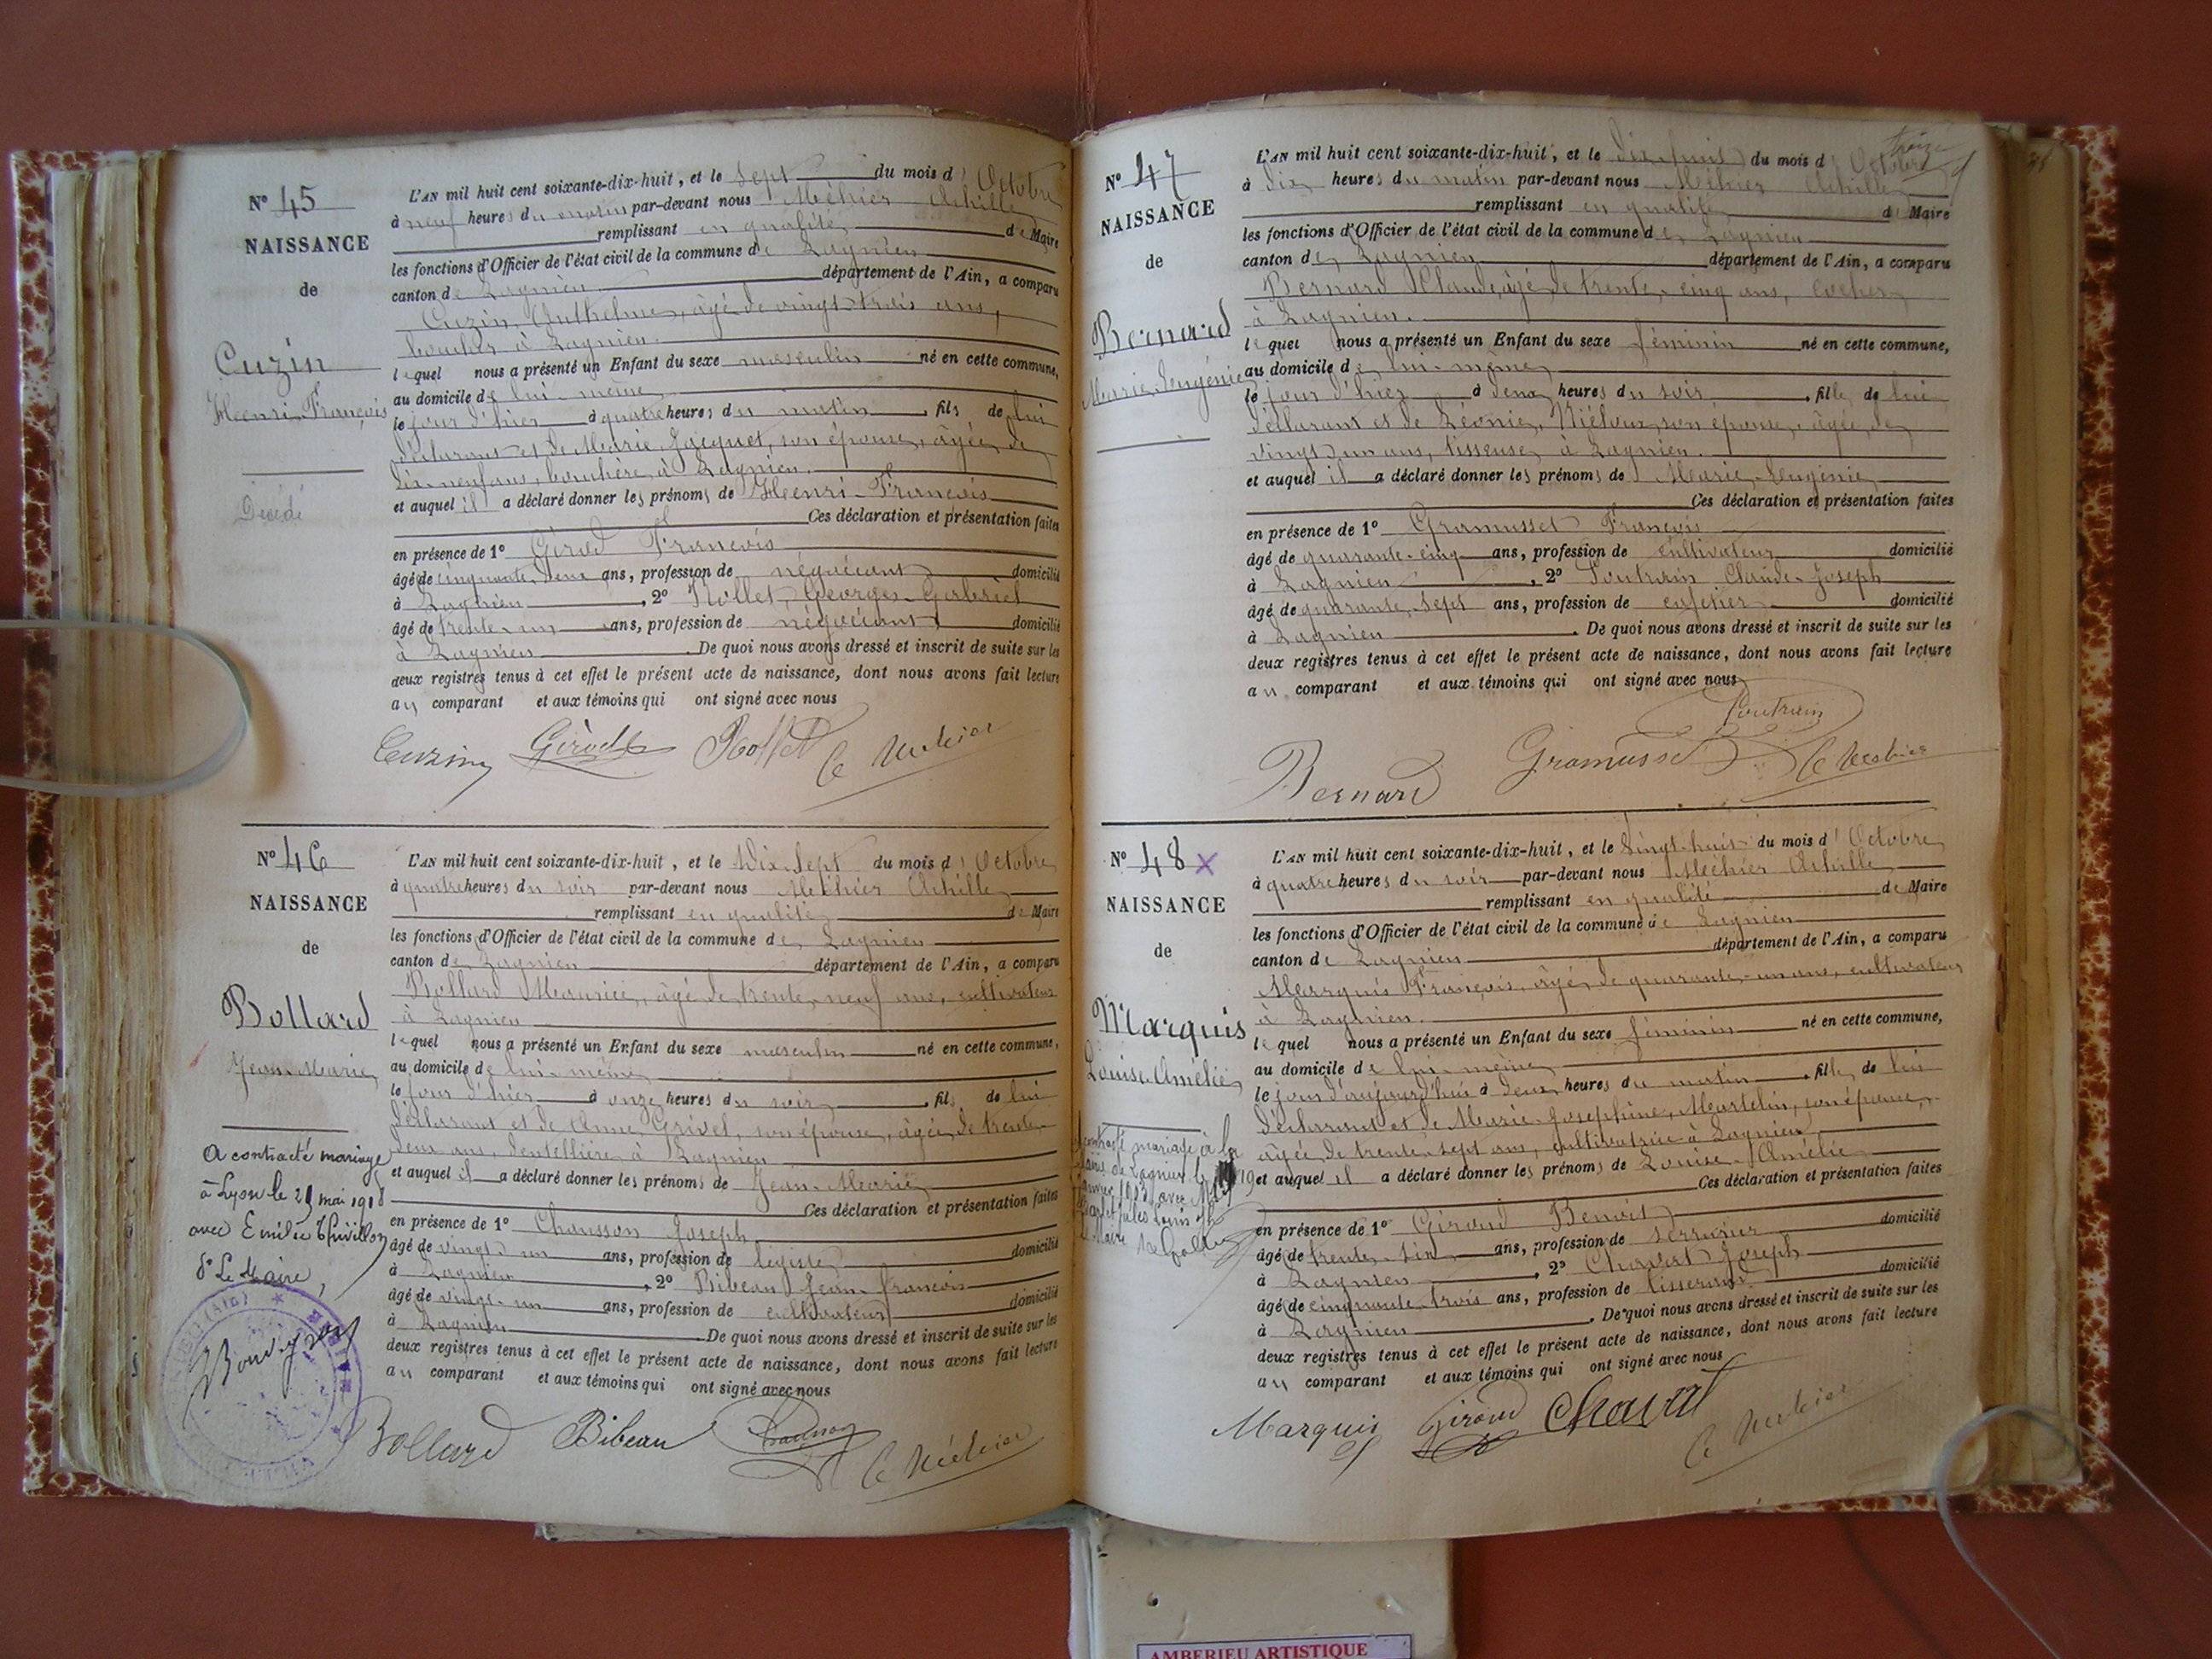 N° 45
NAISSANCE
de
Cuzin
Henri-François
Décédé
L'AN mil huit cent soixante-dix-huit, et le Sept du mois d'Octobre
à neuf heures du matin par-devant nous Méhier Achille
remplissant en qualité de Maire
les fonctions d'Officier de l'état civil de la commune de Lagnieu
canton de Lagnieu département de l'Ain, a comparu
Cuzin Anthelme, âgé de vingt-trois ans,
boucher à Lagnieu.
lequel nous a présenté un Enfant du sexe masculin né en cette commune,
au domicile de lui-même
le jour d'hier à quatre heures du matin, fils de lui
déclarant et de Marie Jacquet, son épouse, âgée de
dix-neuf ans, bouchère à Lagnieu.
et auquel il a déclaré donner les prénoms de Henri-François
Ces déclaration et présentation faites
en présence de 1° Girod François
âgé de cinquante deux ans, profession de négociant domicilié
à Lagnieu, 2° Rollet Georges-Gabriel
âgé de trente-un ans, profession de négociant domicilié
à Lagnieu. De quoi nous avons dressé et inscrit de suite sur les
deux registres tenus à cet effet le présent acte de naissance, dont nous avons fait lecture
au comparant et aux témoins qui ont signé avec nous
Cuzin Girod Rollet
N° 46
NAISSANCE
de
Bollard
Jean-Marie
A contracté mariage
à Lyon le mai 1918
avec Emilie
Le Maire,
L'AN mil huit cent soixante-dix-huit, et le Dix-Sept du mois d'Octobre
à quatre heures du soir par-devant nous Méhier Achille
remplissant en qualité de Maire
les fonctions d'Officier de l'état civil de la commune de Lagnieu
canton de Lagnieu département de l'Ain, a comparu
Bollard Maurice, âgé de trente-neuf ans, cultivateur
à Lagnieu
lequel nous a présenté un Enfant du sexe masculin né en cette commune,
au domicile de lui-même
le jour d'hier à onze heures du soir, fils de lui
déclarant et de Anne Grivel, son épouse, âgée de trente-
deux ans, dentellière à Lagnieu
et auquel il a déclaré donner les prénoms de Jean-Marie
Ces déclaration et présentation faites
en présence de 1° Chausson Joseph
âgé de vingt-un ans, profession de légiste domicilié
à Lagnieu, 2° Bibeau Jean-François
âgé de vingt-un ans, profession de cultivateur domicilié
à Lagnieu. De quoi nous avons dressé et inscrit de suite sur les
deux registres tenus à cet effet le présent acte de naissance, dont nous avons fait lecture
au comparant et aux témoins qui ont signé avec nous
Bollard Bibeau Chausson
N° 47
NAISSANCE
de
Bernard
Marie-Eugénie
L'AN mil huit cent soixante-dix-huit, et le dix-huit du mois d'Octobre
à dix heures du matin par-devant nous Méhier Achille
remplissant en qualité de Maire
les fonctions d'Officier de l'état civil de la commune de Lagnieu
canton de Lagnieu département de l'Ain, a comparu
Bernard Claude, âgé de trente-cinq ans, cocher
à Lagnieu.
lequel nous a présenté un Enfant du sexe féminin né en cette commune,
au domicile de lui-même
le jour d'hier à deux heures du soir, fille de lui
déclarant et de Léonie son épouse, âgée de
vingt-un ans, tisseuse à Lagnieu.
et auquel il a déclaré donner les prénoms de Marie-Eugénie
Ces déclaration et présentation faites
en présence de 1° Gramusset François
âgé de quarante-cinq ans, profession de cultivateur domicilié
à Lagnieu, 2° Poutrain Claude-Joseph
âgé de quarante-sept ans, profession de cafetier domicilié
à Lagnieu. De quoi nous avons dressé et inscrit de suite sur les
deux registres tenus à cet effet le présent acte de naissance, dont nous avons fait lecture
au comparant et aux témoins qui ont signé avec nous
Poutrain
Bernard Gramusset
N° 48 X
NAISSANCE
de
Marquis
Louise-Amélie
contracté mariage à la
L'AN mil huit cent soixante-dix-huit, et le Vingt-huit du mois d'Octobre
à quatre heures du soir par-devant nous Méhier Achille
remplissant en qualité de Maire
les fonctions d'Officier de l'état civil de la commune de Lagnieu
canton de Lagnieu département de l'Ain, a comparu
Marquis François, âgé de quarante-un ans, cultivateur
à Lagnieu.
lequel nous a présenté un Enfant du sexe féminin né en cette commune,
au domicile de lui-même
le jour d'aujourd'hui à deux heures du matin, fille de lui
déclarant et de Marie-Josephine Martelin, son épouse,
âgée de trente-sept ans, cultivatrice à Lagnieu
et auquel il a déclaré donner les prénoms de Louise-Amélie
Ces déclaration et présentation faites
en présence de 1° Giroud Benoit
âgé de trente-six ans, profession de serrurier domicilié
à Lagnieu, 2° Chavat Joseph
âgé de cinquante-trois ans, profession de tisserand domicilié
à Lagnieu. De quoi nous avons dressé et inscrit de suite sur les
deux registres tenus à cet effet le présent acte de naissance, dont nous avons fait lecture
au comparant et aux témoins qui ont signé avec nous
Marquis Giroud Chavat
AMBERIEU ARTISTIQUE